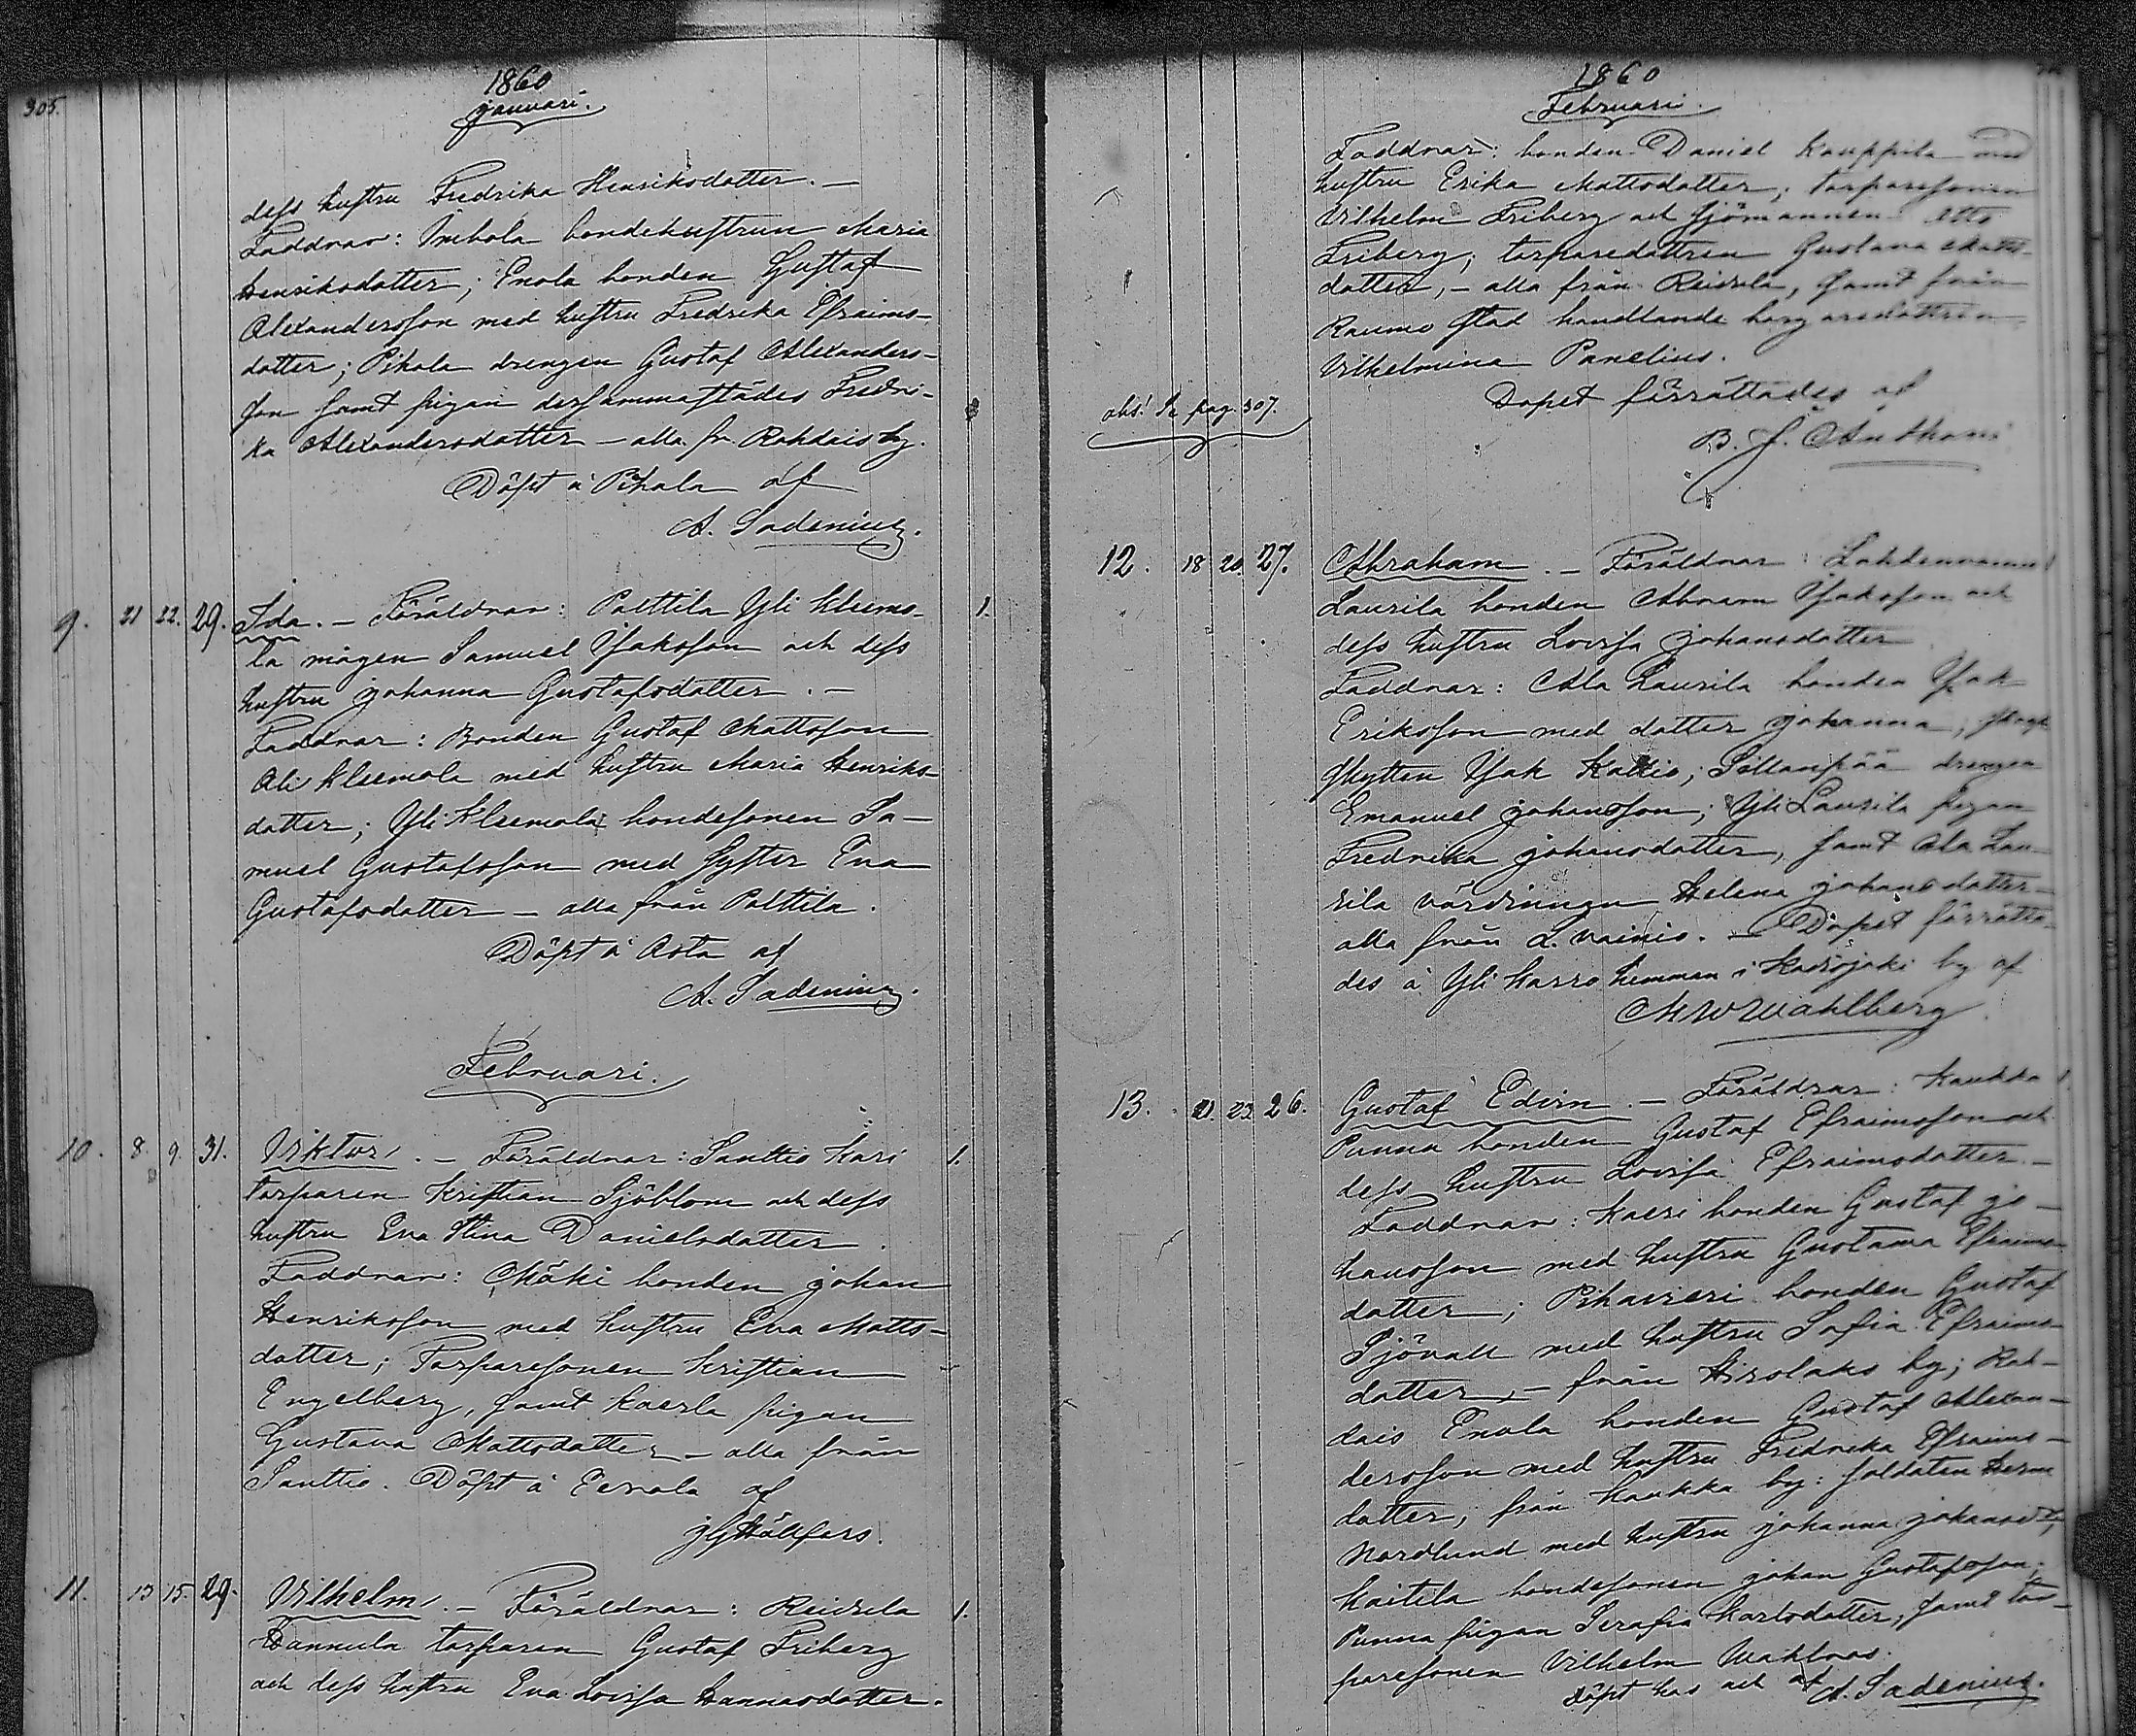 305.
1860
Januari.
dess hustru Fredrika Henriksdotter. —
Faddrar: Imhola bondehustrun Maria
Henriksdotter; Enola bonden Gustaf
Alexandersson med hustru Fredrika Efraims-
dotter; Pihala drengen Gustaf Alexanders-
son samt pigan dersammastädes Fredri-
ka Alexandersdotter — alla fr. Rohdais by.
Döpt å Pihala af
A. Sadenius.
9. 21 22. 29. Ida. — Föräldrar: Palttila Yli Kleemo- 1.
la mågen Samuel Isaksson och dess
hustru Johanna Gustafsdotter. —
Faddrar: Bonden Gustaf Mattsson
Ali Kleemola med hustru Maria Henriks-
dotter; Yli Kleemola bondesonen Sa-
muel Gustafsson med syster Eva
Gustafsdotter — alla från Palttila.
Döpt å Asta af
A. Sadenius.
Februari.
10. 8. 9. 31. Viktor. — Föräldrar: Santtio Kari 1.
torparen Kristian Sjöblom och dess
hustru Eva Stina Danielsdotter.
Faddrar: Mäki bonden Johan
Henriksson med hustru Eva Matts-
dotter; Torparesonen Kristian
Engelberg, samt Kaerla pigan
Gustava Mattsdotter — alla från
Santtio. Döpt å Eerola af
J G Hällfors.
11. 13 15. 29. Vilhelm. — Föräldrar: Reidsila 1.
Hannula torparen Gustaf Friberg
och dess hustru Eva Lovisa Hannusdotter.
1860
Februari.
Faddrar: bonden Daniel Kauppila med
hustru Erika Mattsdotter; torparesonen
Vilhelm Friberg och sjömannen Otto
Friberg; torparedottren Gustava Matts-
dotter, — alla från Reidsila, samt från
Raumo stad handlande borgaredottren
Vilhelmina Panelius.
Dopet förrättades af
obs! Se pag. 307.
B. J. Anthoni
12. 18 20. 27. Abraham. — Föräldrar: Lahdenvainio 1
Laurila bonden Abram Isaksson och
dess hustru Lovisa Johansdotter
Faddrar: Ala Laurila bonden Isak
Eriksson med dotter Johanna;
skytten Isak Kallio; Sillanpää drengen
Emanuel Johansson; Yli Laurila pigan
Fredrika Johansdotter, samt Ala Lau-
rila värdinnan Helena Johansdotter —
alla från L. vainio. — Dopet förrätta-
des å Yli Karro hemman i Kodisjoki by af
M W Wahlberg.
13. 21. 22. 26. Gustaf Edvin. — Föräldrar: Kaukka 1.
Punna bonden Gustaf Efraimsson och
dess hustru Lovisa Efraimsdotter. —
Faddrar: Kaeri bonden Gustaf Jo-
hansson med hustru Gustava Efraims-
dotter; Pihaveri bonden Gustaf
Sjövall med hustru Sofia Efraims-
dotter, — från Hirslaks by; Roh-
dais Enola bonden Gustaf Alexan-
dersson med hustru Fredrika Efraims-
dotter, från Kaukka by: soldaten Herm
Nordlund med hustru Johanna Johansd.;
Kaitila bondesonen Johan Gustafsson;
Punna pigan Serafia Karlsdotter, samt tor-
paresonen Vilhelm Wahlroos.
Döpt hos och af A. Sadenius.